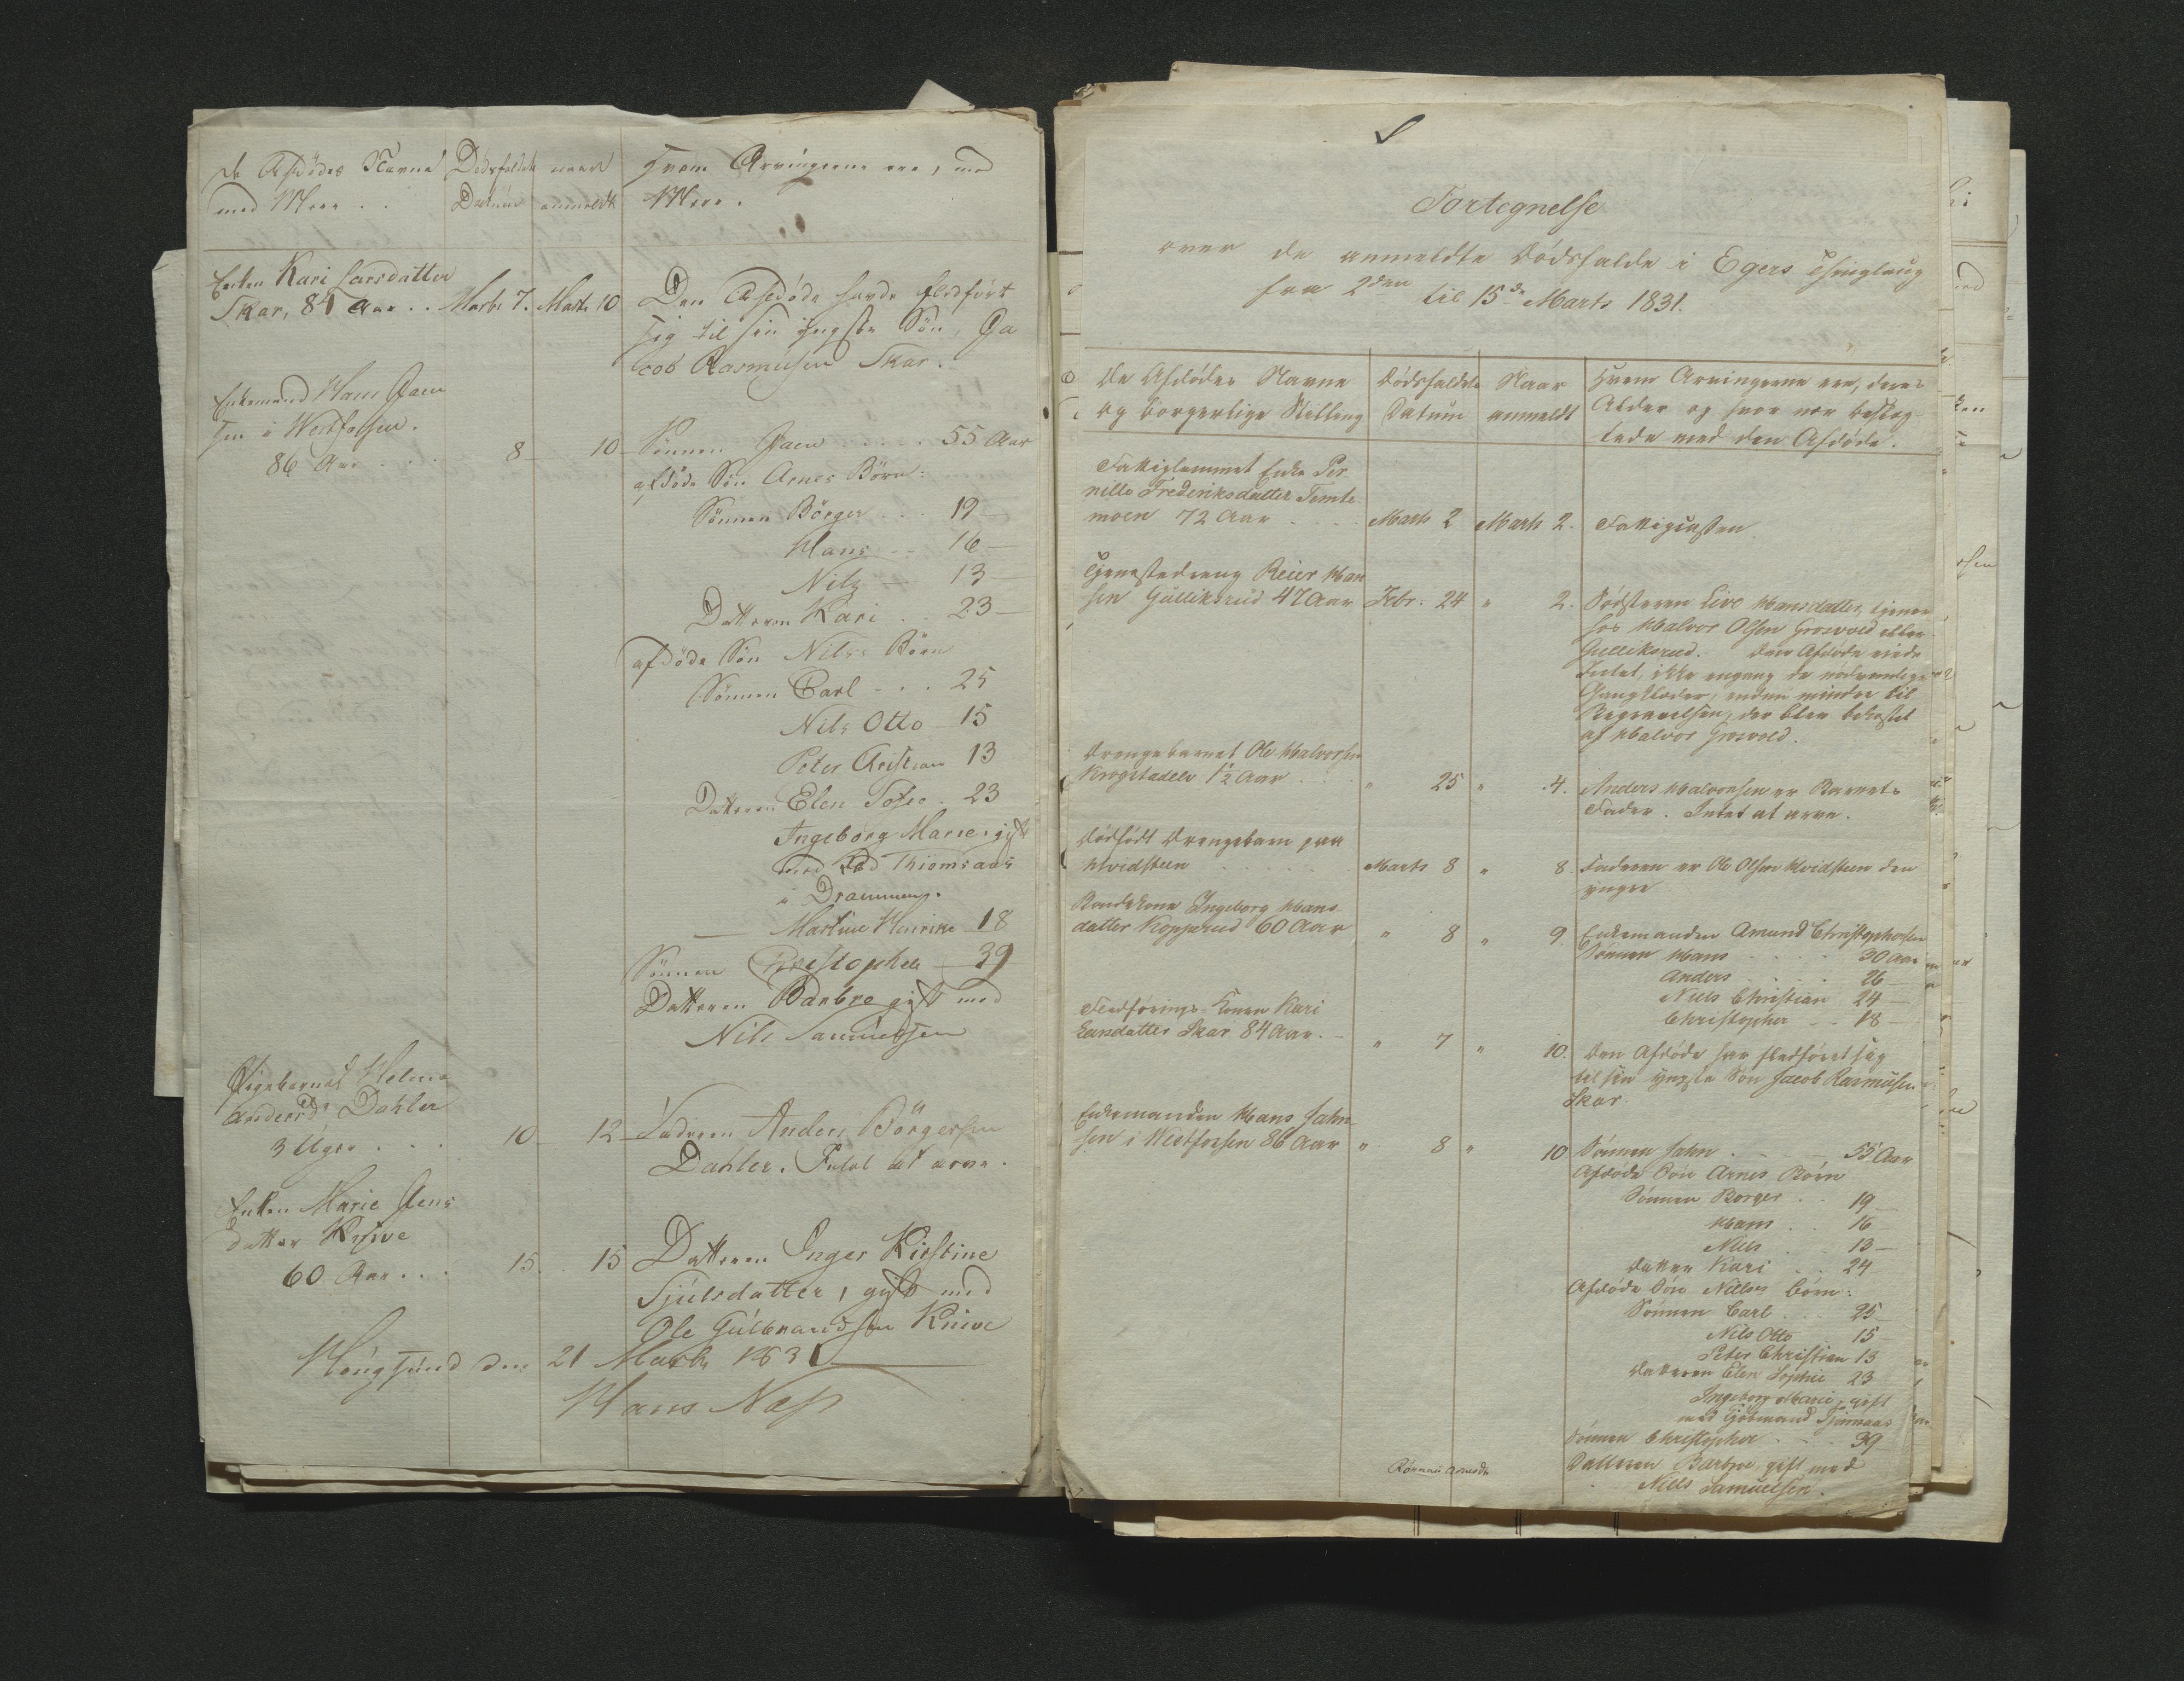 De Afdödes Navne
med Mere . .
Dödsfaldets
Datum
naar
anmeldt
Hvem Arvingerne ere, med
Mere.
Enken Kari Larsdatter
Skar, 84 Aar . . Marts 7. Marts 10
Den Afdöde havde fledfört
sig til sin yngste Sön, Ja
cob Rasmusen Skar.
Enkemand Hans Jaen
sen i Westfossen.
86 Aar . . . 8 10
Sönnen Jaen . . . . 55 Aar
afdöde Sön Arnes Börn:
Sönnen Börger . . . 19 —
Hans - - 16 —
Nils 13 —
Datteren Kari . . 23 —
afdöde Sön Nilss Börn
Sönnen Carl - . . 25
Nils Otto — 15
Peter Cristian 13
Datteren Elen Sofie . 23
Ingeborg Marie, gift
med Thiomsaas
i Drammen.
— Martine Henrike 18
Sönnen Cristopher — 39
Datteren Barbre gift med
Nils Samuelsen
Pigebarnet Helene
Andersd. Dahler
3 Uger . . . 10 — 12
Faderen Anders Börgersen
Dahler. Intet at arve.
Enken Marie Jens
datter Knive
60 Aar . . . 15. 15
Datteren Inger Kirstine
Sjulsdatter, gift med
Ole Gulbrandsen Knive
Hougsund den 21 Marts 1831
Hans Næss
Fortegnelse
over de anmeldte Dödsfalde i Egers Thinglaug
fra 2den til 15de Marts 1831.
De Afdödes Navne
og borgerlige Stilling
Dödsfaldets
Datum
Naar
anmeldt
Hvem Arvingerne ere, deres
Alder og hvor nær beslæg-
tede med den Afdöde.
Fattiglemmet Enke Per
nille Frederiksdatter Temte
moen 72 Aar . . . . Marts 2 Marts 2. Fattigkassen
Tjenestedreng Reier Han
sen Gulliksrud 47 Aar Febr. 24 " 2.
Södsteren Live Hansdatter, tjener
hos Halvor Olsen Grosvold eller
Gulliksrud. Den Afdöde eiede
Intet, ikke engang de nödvendige
Gangklæder, enden mindre til
Begravelsen, der blev bekostet
af Halvor Grosvold.
Drengebarnet Ole Halvorsen
Krogstadelv 1½ Aar . . . " 25 " 4.
Anders Halvorsen er Barnets
Fader. Intet at arve.
Dödfödt Drengebarn paa
Hvidsteen . . . . . Marts 8 " 8
Faderen er Ole Olsen Hvidsteen den
yngre
Bondekone Ingeborg Hans-
datter Kopperud 60 Aar " 8 " 9.
Enkemanden Amund Christophersen
Sönnen Hans . . . . 30 Aar
Anders . . . . 26 —
Niels Christian 24 —
Christopher - - 18 —
Fledförings-Konen Kari
Larsdatter Skar 84 Aar. - " 7 " 10.
Den Afdöde har fledföret sig
til sin yngste Sön Jacob Rasmusen
Skar.
Enkemanden Hans Jahn
sen i Westfossen 86 Aar " 8 " 10
Sönnen Jahn . - - - 55 Aar
Afdöde Sön Arnes Börn
Sönnen Borger . . 19 —
Hans . . 16 —
Niels . . 13 —
Datter Kari . . 24
Afdöde Sön Nilses börn:
Sönnen Carl . . . 25
Nils Otto . 15
Peter Christian 13
Datteren Elen Sophie 23
Ingeborg Marie, gift
med Kjöbmand
Sönnen Christopher . - - . 39
Datteren Barbre gift med
Niels Samuelsen.